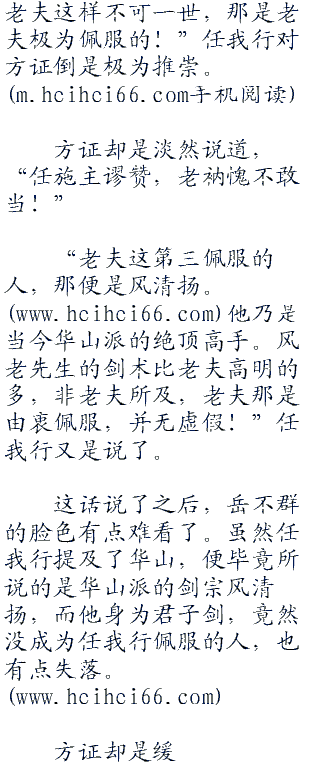 老夫这样不可一世，那是老
夫极为佩服的！”任我行对
方证倒是极为推崇。
(m.hcihci66.com手机阅读)
方证却是淡然说道，
“任施主谬赞，老衲愧不敢
当！”
“老夫这第三佩服的
人，那便是风清扬。
(www.hcihci66.com)他乃是
当今华山派的绝顶高手。风
老先生的剑术比老夫高明的
多，非老夫所及，老夫那是
由衷佩服，并无虚假！”任
我行又是说了。
这话说了之后，岳不群
的脸色有点难看了。虽然任
我行提及了华山，便毕竟所
说的是华山派的剑宗风清
扬，而他身为君子剑，竟然
没成为任我行佩服的人，也
有点失落。
(www.hcihci66.com)
方证却是缓